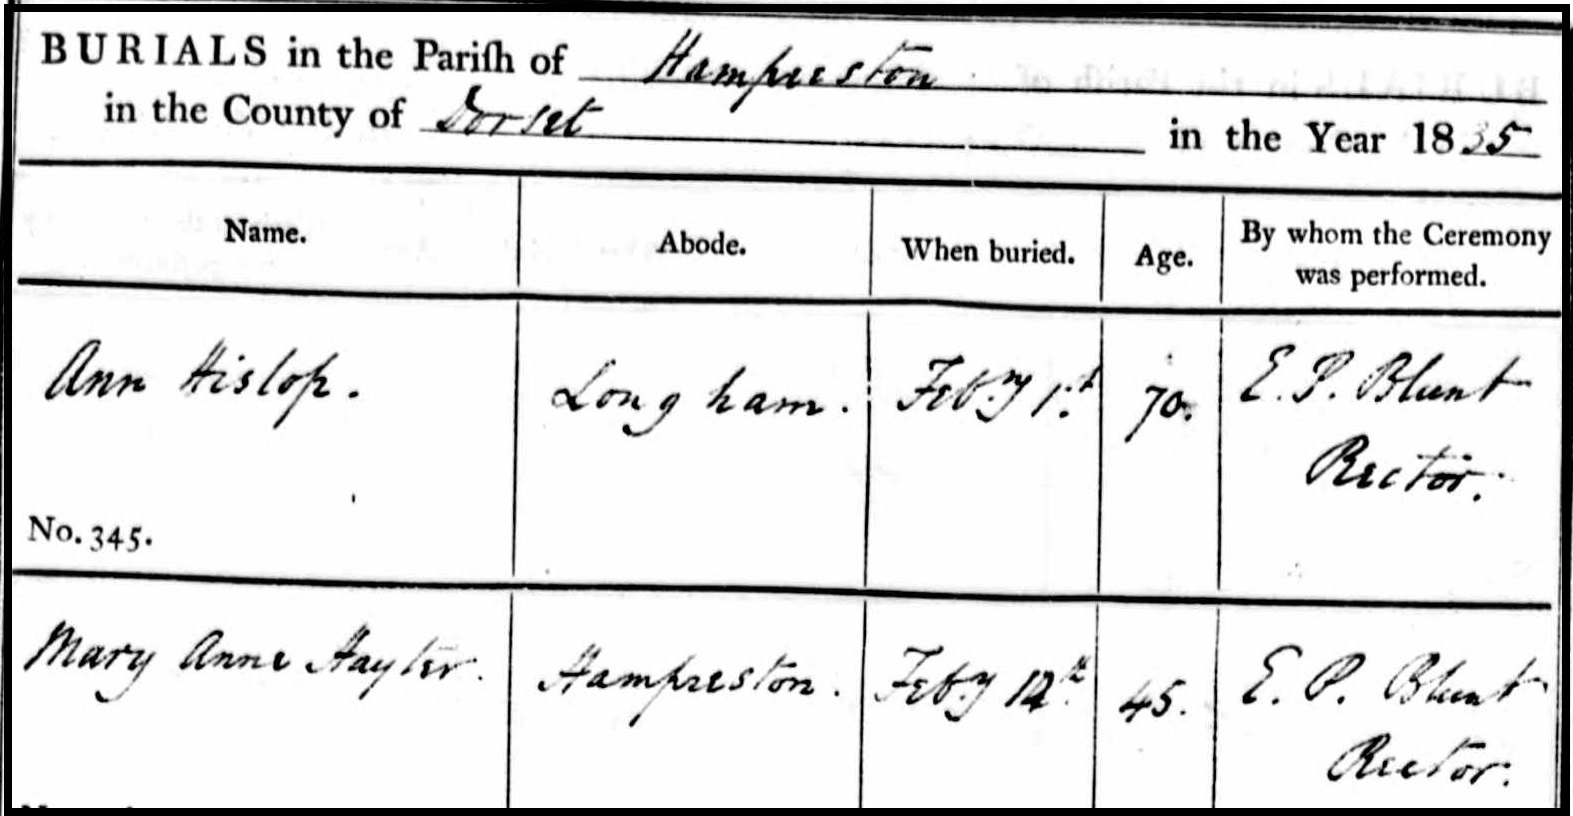 BURIALS in the Pariſh of Hampreston
in the County of Dorset in the Year 1835
Name. Abode. When buried. Age. By whom the Ceremony was performed.
Ann Hislop. Longham. Feby 1st 70. E. P. Blunt
Rector.
No. 345.
Mary Anne Hayter. Hampreston. Feby 45. E. P. Blunt
Rector.